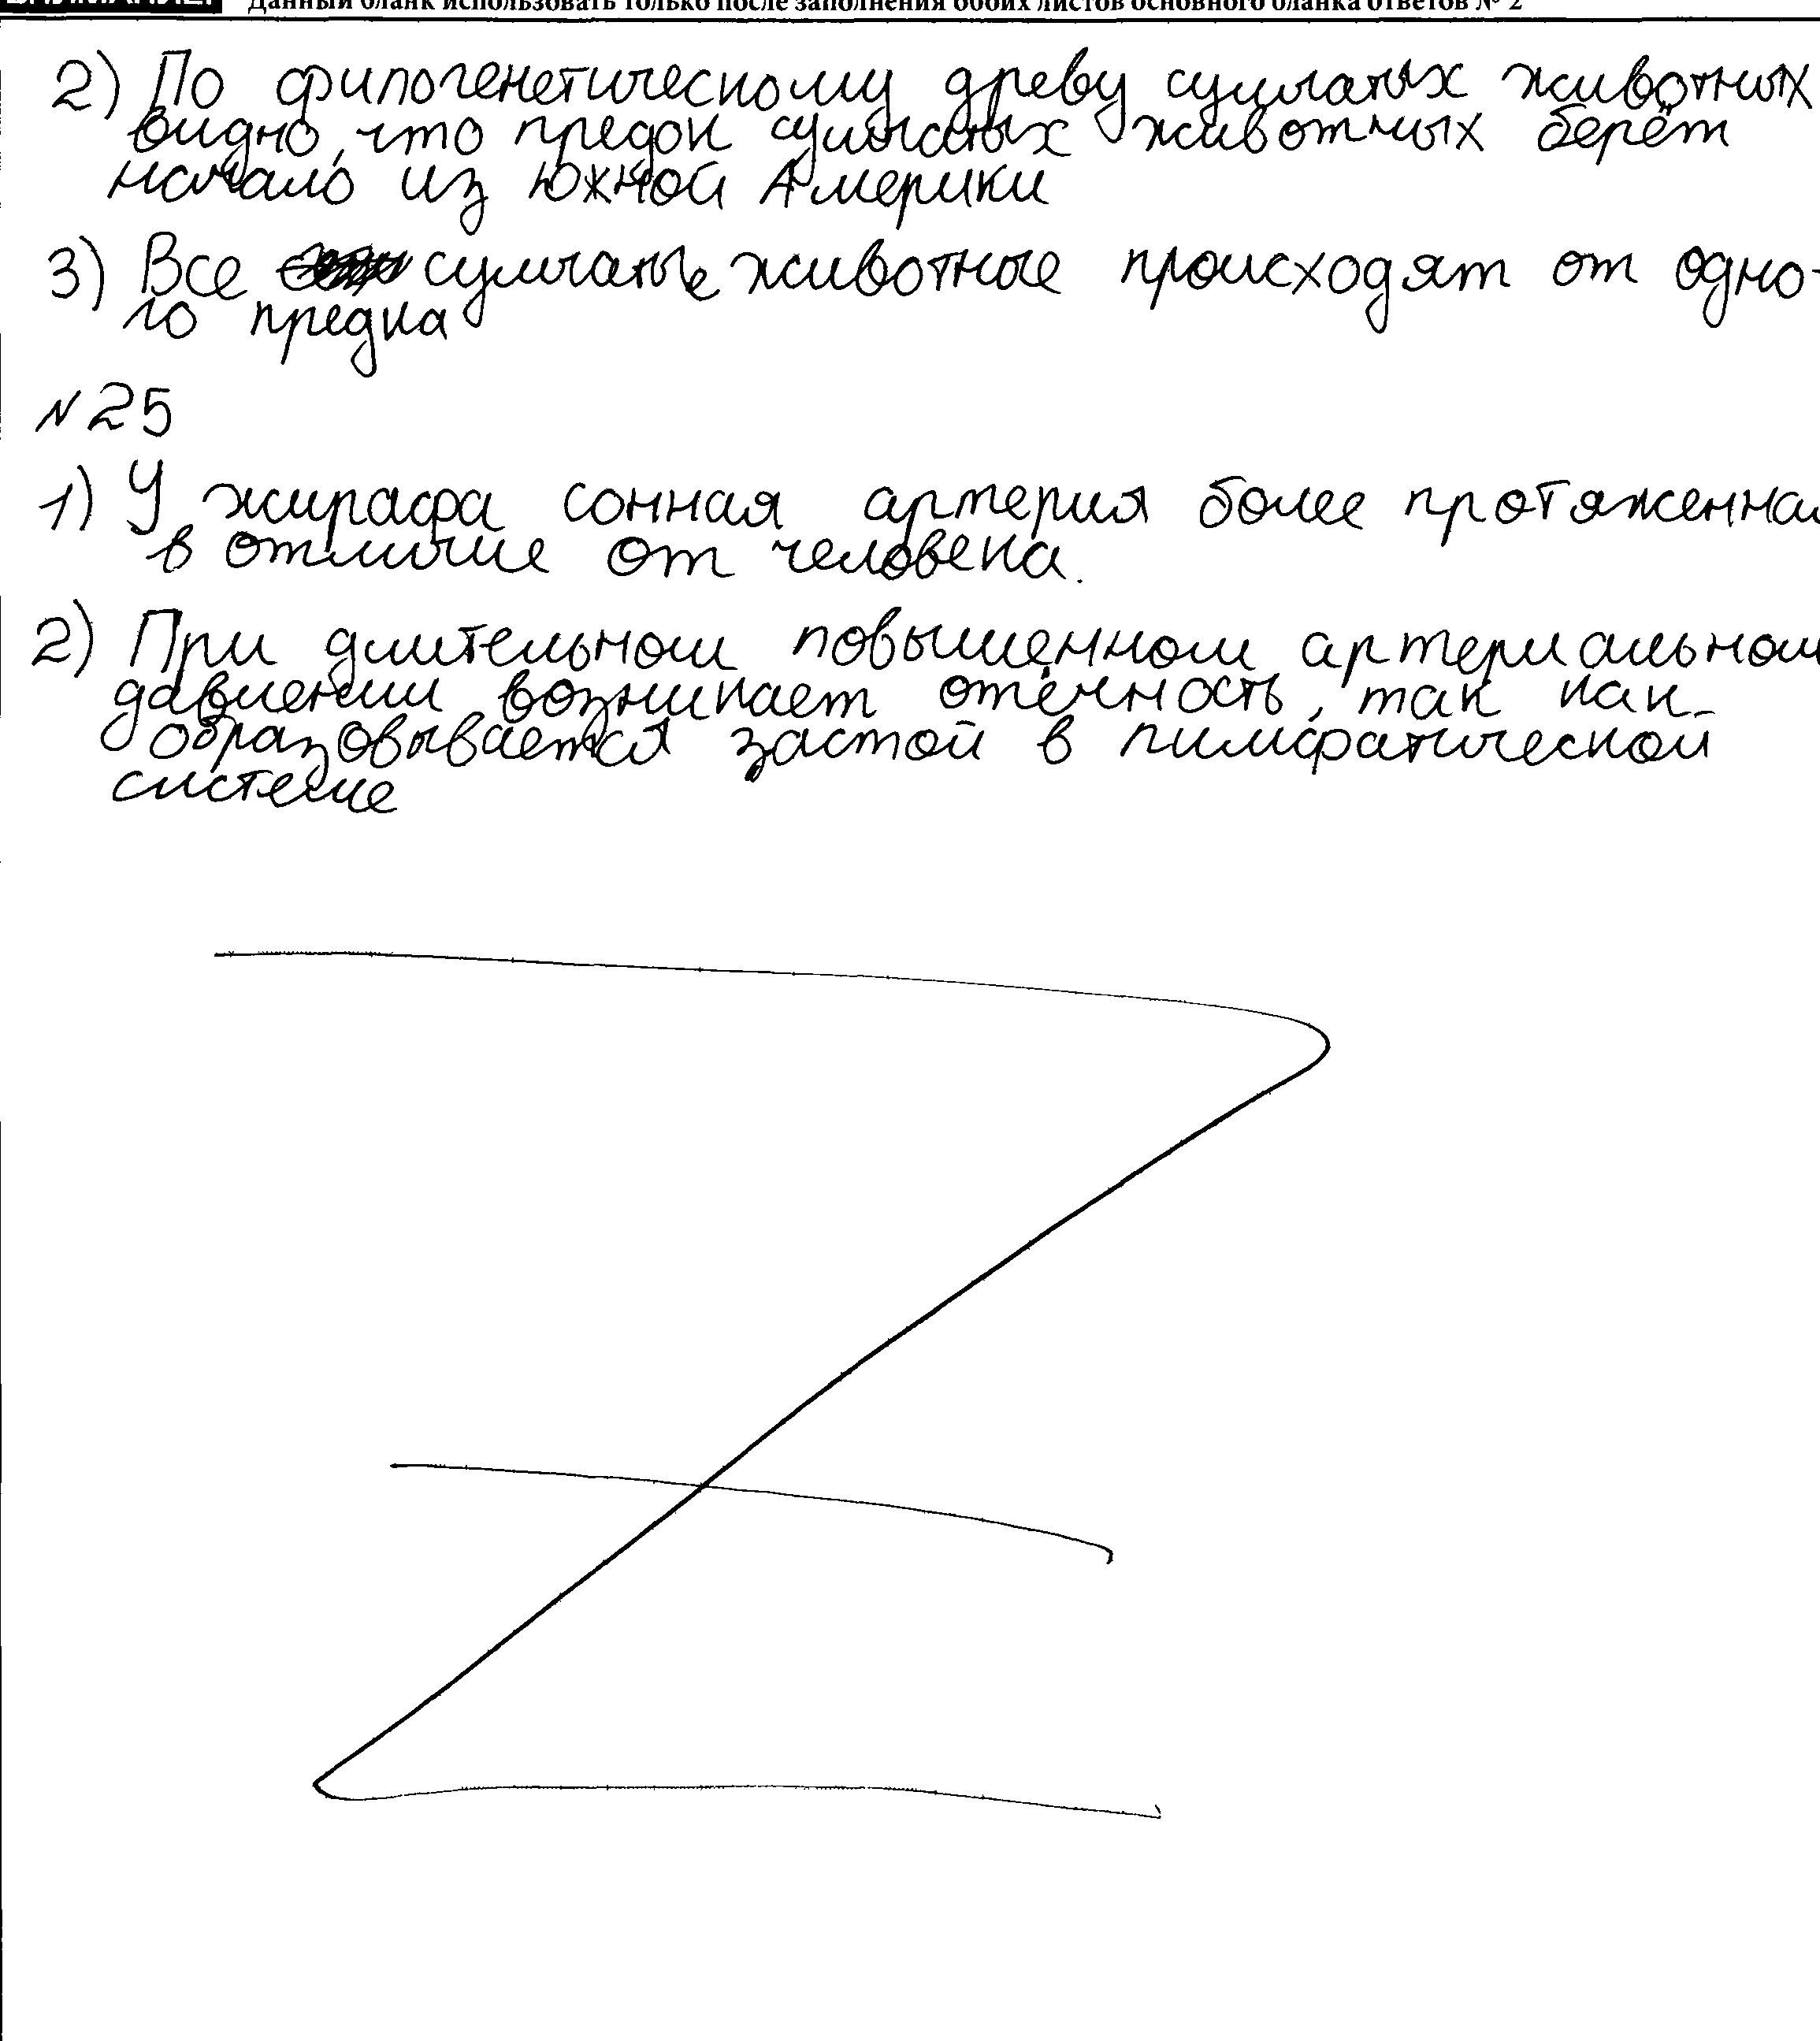 Данный бланк использовать только после заполнения обоих листов основного бланка ответов № 2
2) По филогенетическому древу сумчатых животных
видно, что предок сумчатых животных берёт
начало из Южной Америки
3) Все сумчатые животные происходят от одно-
го предка
№25
1) У жирафа сонная артерия более протяженная
в отличие от человека.
2) При длительном повышенном артериальном
давлении возникает отёчность, так как
образовывается застой в лимфатической
системе